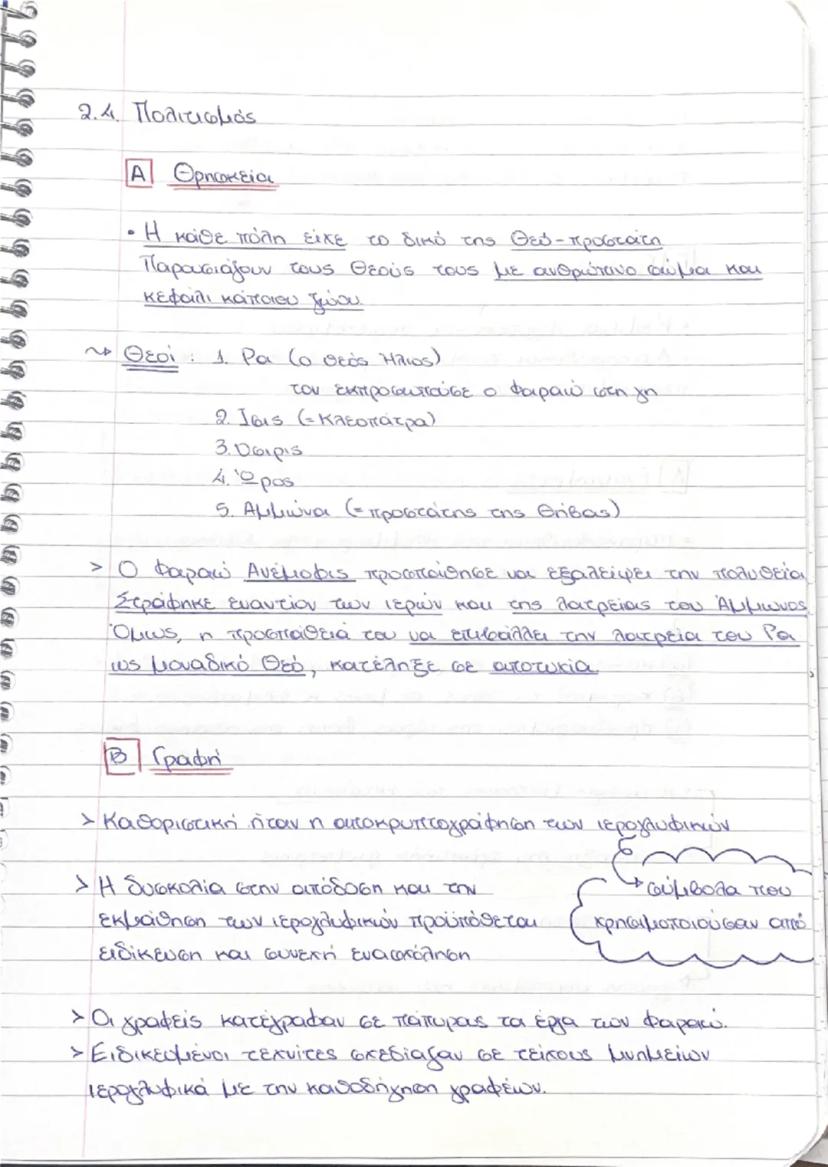 2.4. Πολιτισμός
Α Θρησκεία
• Η κάθε πόλη είχε το δικό της Θεό-προστάτη
Παρουσιάζουν τους Θεούς τους με ανθρώπινο σώμα και
κεφάλι κάποιου ζώου
Θεοί : 1. Ρα (ο θεός Ήλιος)
τον εκπροσωπούσε ο Φαραώ στη γη
2. Ισις (=Κλεοπάτρα)
3. Οσιρις
4. Ώρος
5. Αμμώνα (=προστάτης της Θήβας)
> Ο Φαραώ Ανέμοφις προσπάθησε να εξαλείψει την πολυθεία
Στράφηκε εναντίον των ιερών και της λατρείας του Άμμωνος
Όμως, η προσπάθειά του να επιβάλλει την λατρεία του Ρα
ως μοναδικό Θεό, κατέληξε σε αποτυχία
Β Γραφή
> Καθοριστική ήταν η αποκρυπτογράφηση των ιερογλυφικών
> Η δυσκολία στην απόδοση και την
εκμάθηση των ιερογλυφικών προϋπόθεται
ειδίκευση και συνεχή ενασχόληση
σύμβολα που
χρησιμοποιούσαν από
> Οι γραφείς κατέγραφαν σε πάπυρας τα έργα των Φαραώ.
> Ειδικευμένοι τεχνίτες σχεδίαζαν σε τείχους μνημείων
ιερογλυφικά με την καθοδήγηση γραφέων.